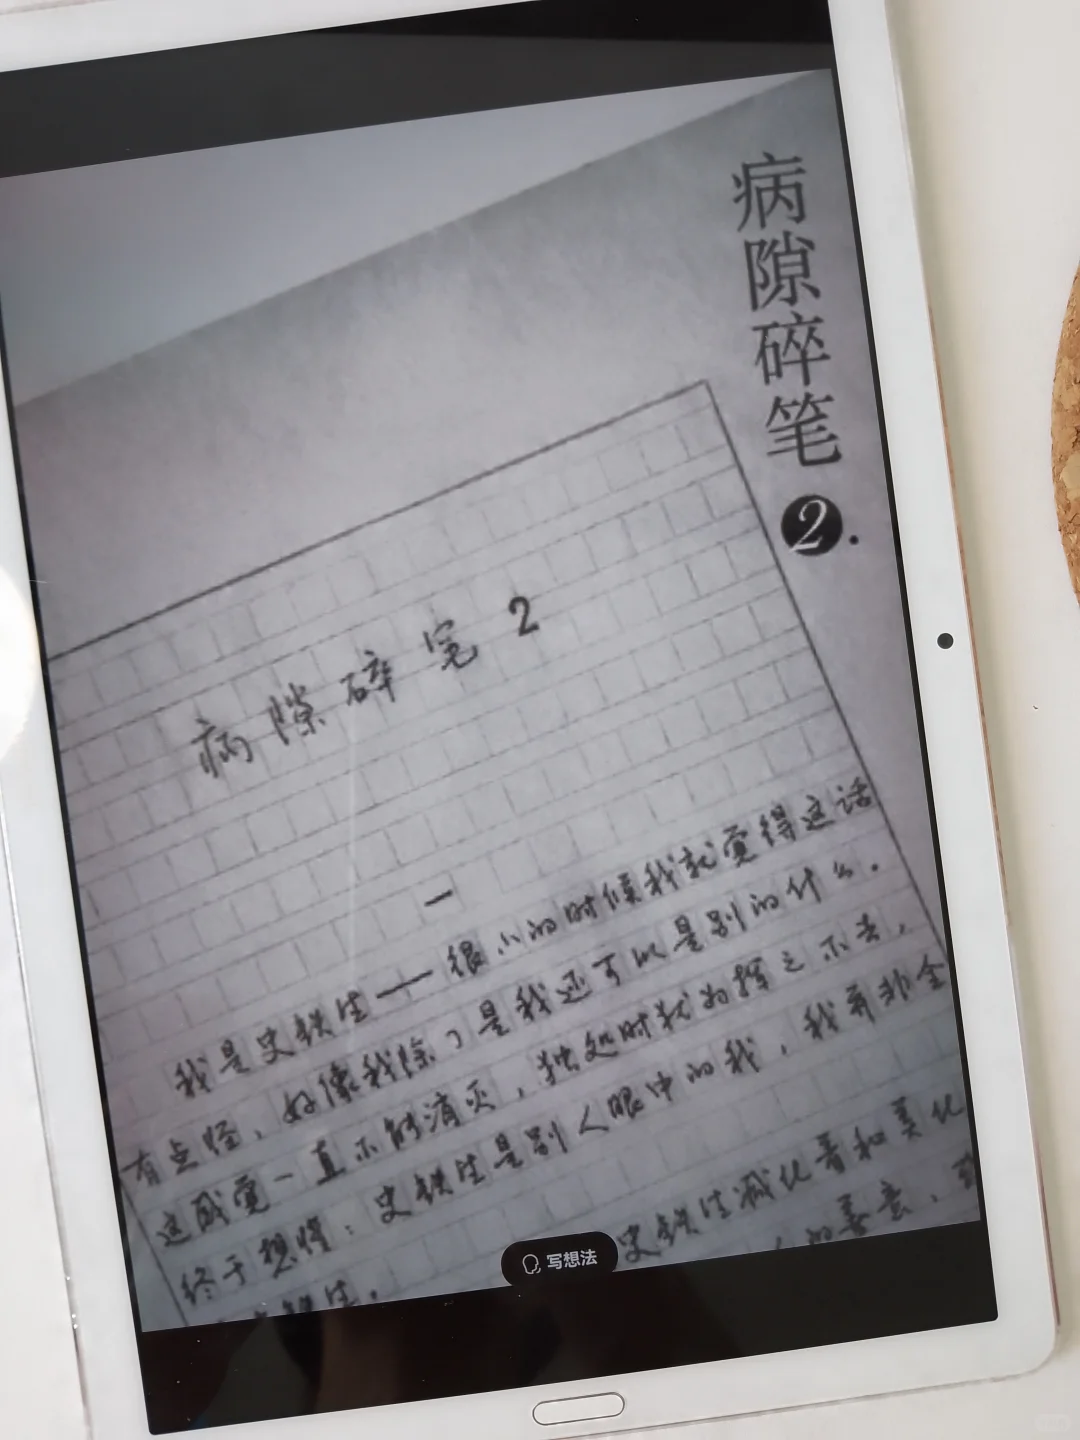 病隙碎笔
2.
病隙碎笔 2
一
我是史铁生——很小的时候我就觉得这话
有点怪，好像我除了是我还可以是别的什么。
这感觉一直不能消灭，独处时尤为挥之不去，
终于想懂：史铁生是别人眼中的我，我并非全
铁生。
史铁生减化着和美化
写想法